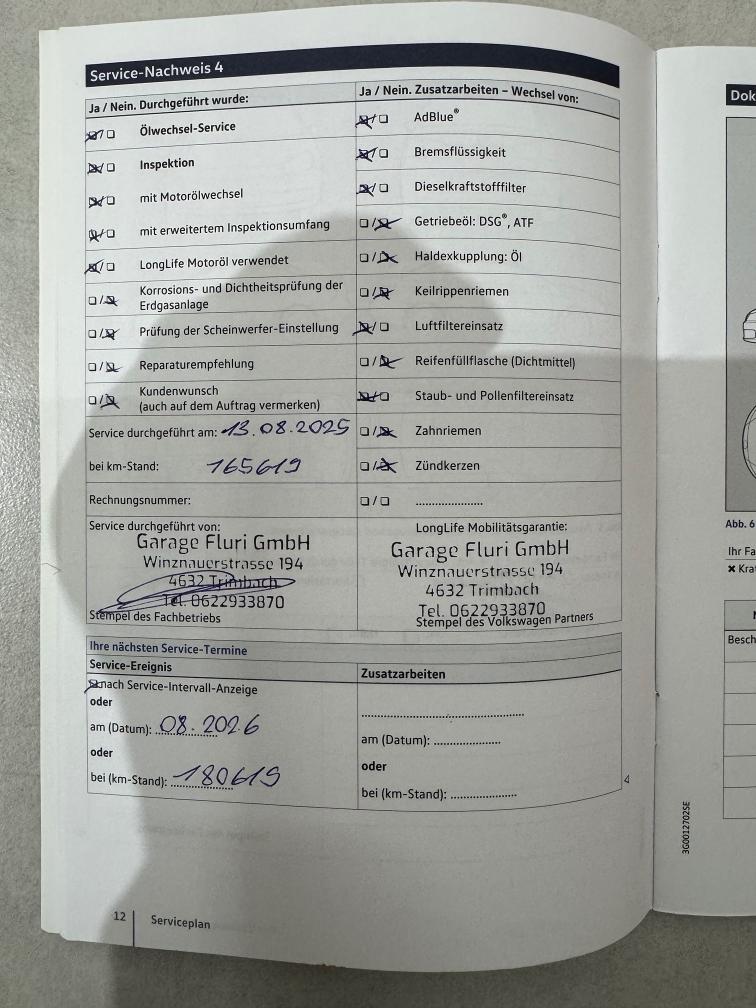 Service-Nachweis 4
Ja / Nein. Durchgeführt wurde:
☒/☐ Ölwechsel-Service
☒/☐ Inspektion
☒/☐ mit Motorölwechsel
☒/☐ mit erweitertem Inspektionsumfang
☒/☐ LongLife Motoröl verwendet
☐/☒ Korrosions- und Dichtheitsprüfung der
Erdgasanlage
☐/☒ Prüfung der Scheinwerfer-Einstellung
☐/☒ Reparaturempfehlung
☐/☒ Kundenwunsch
(auch auf dem Auftrag vermerken)
Service durchgeführt am: 13.08.2025
bei km-Stand: 165619
Rechnungsnummer:
Service durchgeführt von:
Garage Fluri GmbH
Winznauerstrasse 194
4632 Trimbach
Tel. 0622933870
Stempel des Fachbetriebs
Ja / Nein. Zusatzarbeiten – Wechsel von:
☒/☐ AdBlue®
☒/☐ Bremsflüssigkeit
☒/☐ Dieselkraftstofffilter
☐/☒ Getriebeöl: DSG®, ATF
☐/☒ Haldexkupplung: Öl
☐/☒ Keilrippenriemen
☒/☐ Luftfiltereinsatz
☐/☒ Reifenfüllflasche (Dichtmittel)
☒/☐ Staub- und Pollenfiltereinsatz
☐/☒ Zahnriemen
☐/☒ Zündkerzen
☐/☐ ....................
LongLife Mobilitätsgarantie:
Garage Fluri GmbH
Winznauerstrasse 194
4632 Trimbach
Tel. 0622933870
Stempel des Volkswagen Partners
Ihre nächsten Service-Termine
Service-Ereignis
☒ nach Service-Intervall-Anzeige
oder
am (Datum): 08.2026
oder
bei (km-Stand): 180619
Zusatzarbeiten
................................................
am (Datum): ....................
oder
bei (km-Stand): ....................
12 Serviceplan
3G0012702SE
Dok
Abb. 6
Ihr Fa
✖ Kra
Besch